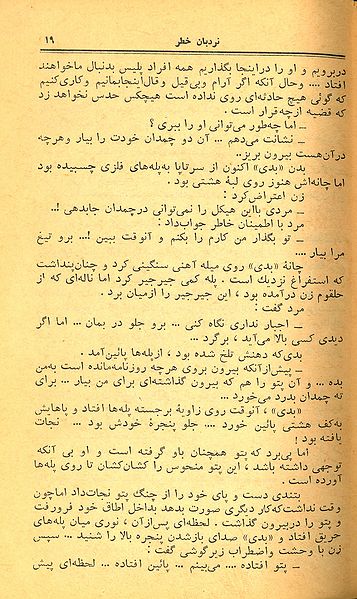 نردبان خطر
۱۹
دربرویم و او را دراینجا بگذاریم همه افراد پلیس بدنبال ماخواهند
افتاد .... وحال آنکه اگر آرام وبی‌قیل وقال‌اینجابمانیم وکاری‌کنیم
که گوئی هیچ حادثه‌ای روی نداده است هیچکس حدس نخواهد زد
که قضیه ازچه‌قرار است .
ــ اما چه‌طور می‌توانی او را ببری ؟
ــ نشانت می‌دهم ... آن دو چمدان خودت را بیار وهرچه
درآن‌هست بیرون بریز..
بدن «بدی» اکنون از سرتاپا به‌پله‌های فلزی چسبیده بود
اما چانه‌اش هنوز روی لبهٔ هشتی بود .
زن اعتراض‌کرد :
ــ مردی بااین هیکل را نمی‌توانی درچمدان جابدهی !..
مرد با اطمینان خاطر جواب‌داد :
ــ تو بگذار من کارم را بکنم و آنوقت ببین !... برو تیغ
مرا بیار ....
چانهٔ «بدی» روی میله آهنی سنگینی کرد و چنان‌پنداشت
که استفراغ نزدیك است . پله کمی جیرجیر کرد اما ناله‌ای که از
حلقوم زن درآمده بود ، این جیرجیر را ازمیان برد .
مرد گفت :
ــ اجبار نداری نگاه کنی ... برو جلو در بمان ... اما اگر
دیدی کسی بالا می‌آید ، برگرد ...
بدی‌که دهنش تلخ شده بود ، ازپله‌ها پائین‌آمد .
ــ پیش‌ازآنکه بیرون بروی هرچه روزنامه‌مانده است به‌من
بده ... و آن پتو را هم که بیرون گذاشته‌ای برای من بیار ... برای
ته چمدان بدرد می‌خورد ...
«بدی» ، آنوقت روی زاویهٔ برجسته پله‌ها افتاد و پاهایش
به‌کف هشتی پائین خورد .... جلو پنجرهٔ خودش بود ... نجات
یافته بود !
اما پی‌برد که پتو همچنان باو گرفته است و او بی آنکه
توجهی داشته باشد ، این پتو منحوس را کشان‌کشان تا روی پله‌ها
آورده است .
بتندی دست و پای خود را از چنگ پتو نجات‌داد اماچون
وقت نداشت‌که‌کار دیگری صورت بدهد بداخل اطاق خود فرورفت
و پتو را دربیرون گذاشت . لحظه‌ای پس‌ازآن ، نوری میان پله‌های
حریق افتاد و «بدی» صدای بازشدن پنجره بالا را شنید ... سپس
زن با وحشت واضطراب زیرگوشی گفت :
ــ پتو افتاده .... می‌بینم ... پائین افتاده ... لحظه‌ای پیش